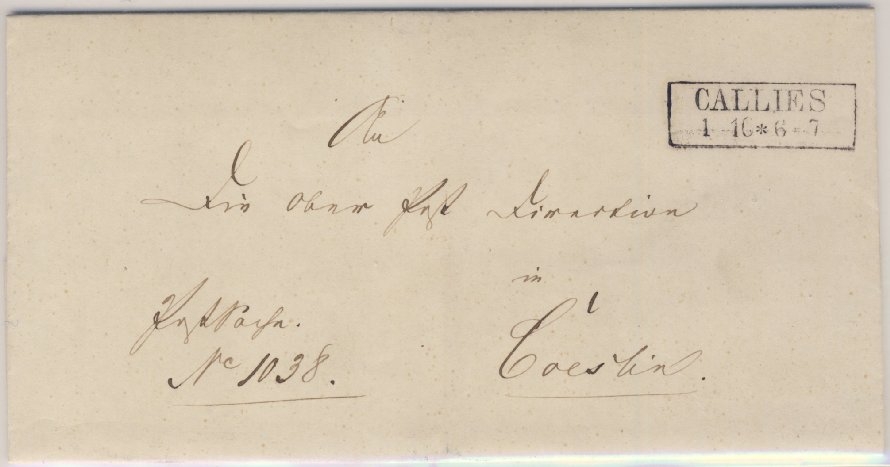 CALLIES
1 10 * 6-7
An
Die Ober Post Direction
in
Coeslin.
PostSache.
No 1038.